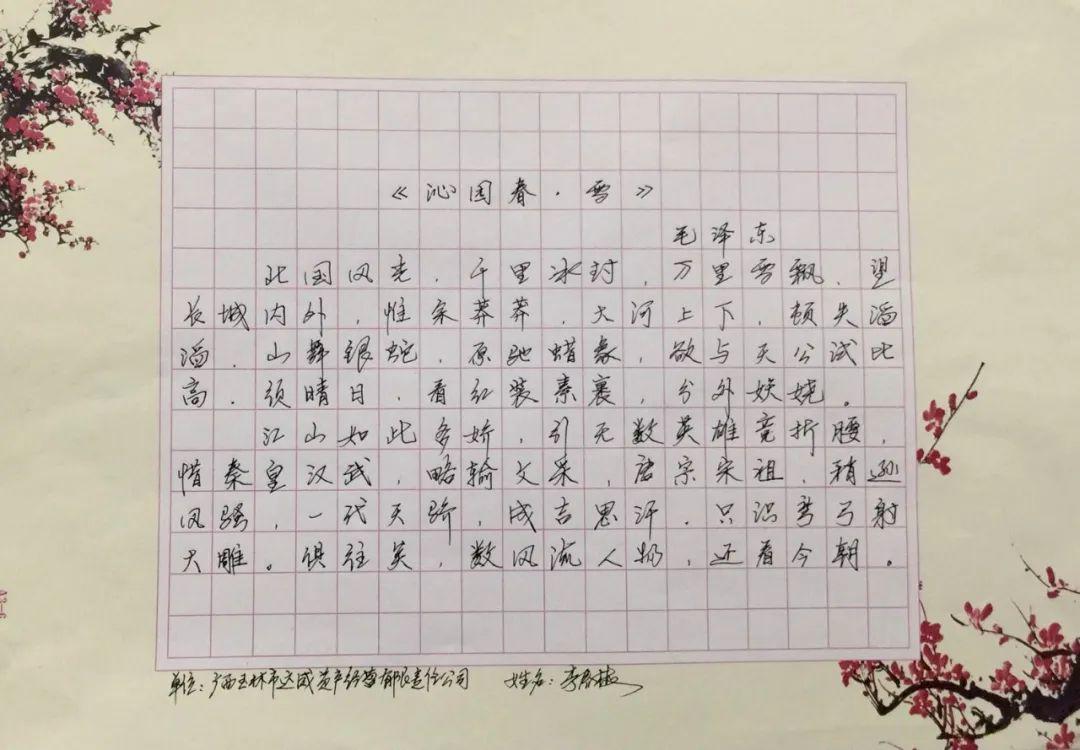 《沁园春·雪》
毛泽东
北国风光，千里冰封，万里雪飘，望
长城内外，惟余莽莽，大河上下，顿失滔
滔，山舞银蛇，原驰蜡象，欲与天公试比
高，须晴日，看红装素裹，分外妖娆。
江山如此多娇，引无数英雄竞折腰，
惜秦皇汉武，略输文采，唐宗宋祖，稍逊
风骚，一代天骄，成吉思汗，只识弯弓射
大雕。俱往矣，数风流人物，还看今朝。
单位：广西玉林市达成资产经营有限责任公司 姓名：李